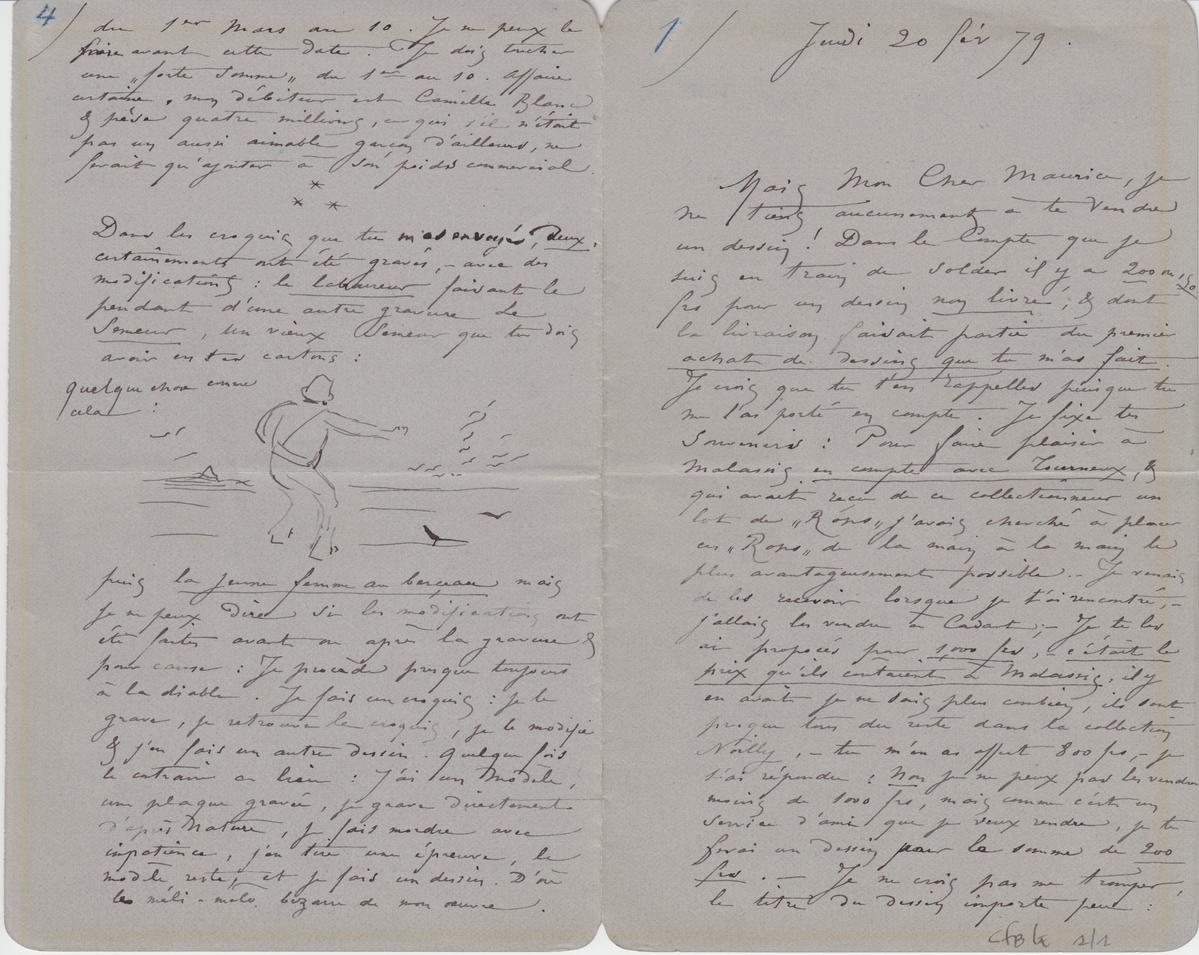 4)
du 1er Mars au 10. Je ne peux le
faire avant cette date. Je dois toucher
une „forte somme„ du 1er au 10. Affaire
certaine, mon débiteur est Camille Blanc
& pèse quatre millions, ce qui s'il n'était
pas un aussi aimable garçon d'ailleurs, ne
ferait qu'ajouter à son poids commercial.
* * *
Dans les croquis que tu m'as envoyés, deux,
certainements ont été gravés, – avec des
modifications : le laboureur faisant le
pendant d'une autre gravure Le
Semeur, un vieux Semeur que tu dois
avoir en tes cartons :
quelque chose comme
cela :
puis la jeune femme au berceau mais
je ne peux dire si les modifications ont
été faites avant ou après la gravure &
pour cause : Je procède presque toujours
à la diable. Je fais un croquis : je le
grave, je retrouve le croquis, je le modifie
& j'en fais un autre dessin. Quelque fois
le contraire a lieu : J'ai un modèle,
une plaque gravée, je grave directement
d'après Nature, je fais mordre avec
impatience, j'en tire une épreuve, le
modèle reste, et je fais un dessin. D'où
le méli-mélo bizarre de mon œuvre.
1)
Jeudi 20 fév 79.
Mais Mon Cher Maurice, je
ne tiens aucunement à te vendre
un dessin ! Dans le Compte que je
suis en train de solder il y a 200
frs pour un dessin non livré, & dont
la livraison faisait partie du premier
achat de dessins que tu m'as fait.
Je crois que tu t'en rappelles puisque tu
me l'as porté en compte. Je fixe tes
souvenirs : Pour faire plaisir à
Malassis en compte avec Tourneux, &
qui avait reçu de ce collectionneur un
lot de „Rops„ j'avais cherché à placer
ces „Rops„ de la main à la main le
plus avantageusement possible. – Je venais
de les recevoir lorsque je t'ai rencontré, –
j'allais les vendre à Cadart ; – Je te les
ai proposés pour 1000 frs, – c'était le
prix qu'ils coûtaient à Malassis, il y
en avait je ne sais plus combien, ils sont
presque tous du reste dans la collection
Noilly, – tu m'en as offert 800 frs, – je
t'ai répondu : Non je ne peux pas les vendre
moins de 1000 frs, mais comme c'est un
service d'ami que je veux rendre, je te
ferai un dessin pour la somme de 200
frs. – Je ne crois pas me tromper,
le titre du dessin importe peu :
1/1